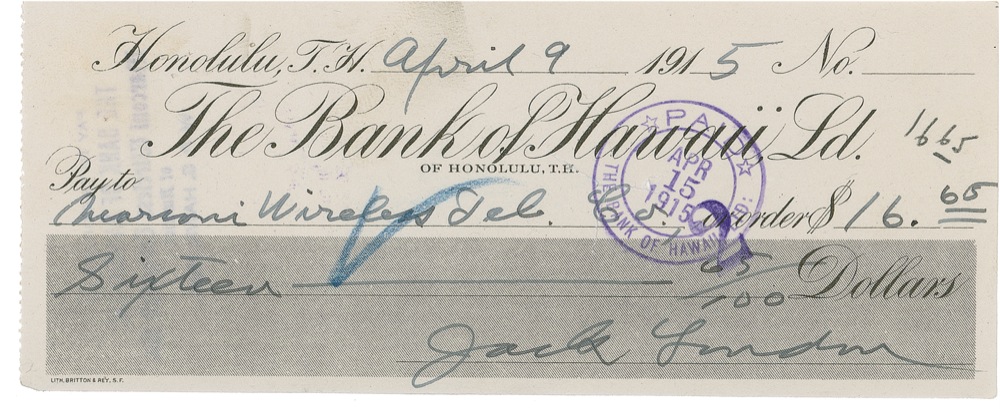 Honolulu, T.H. April 9 1915 No.
The Bank of Hawaii, Ld.
OF HONOLULU, T.H.
16 65
Pay to
Marconi Wireless Tel. Co. or order $ 16. 65
Sixteen 65/100 Dollars
Jack London
LITH. BRITTON & REY, S.F.
PAID
APR
15
1915
THE BANK OF HAWAII, LD.